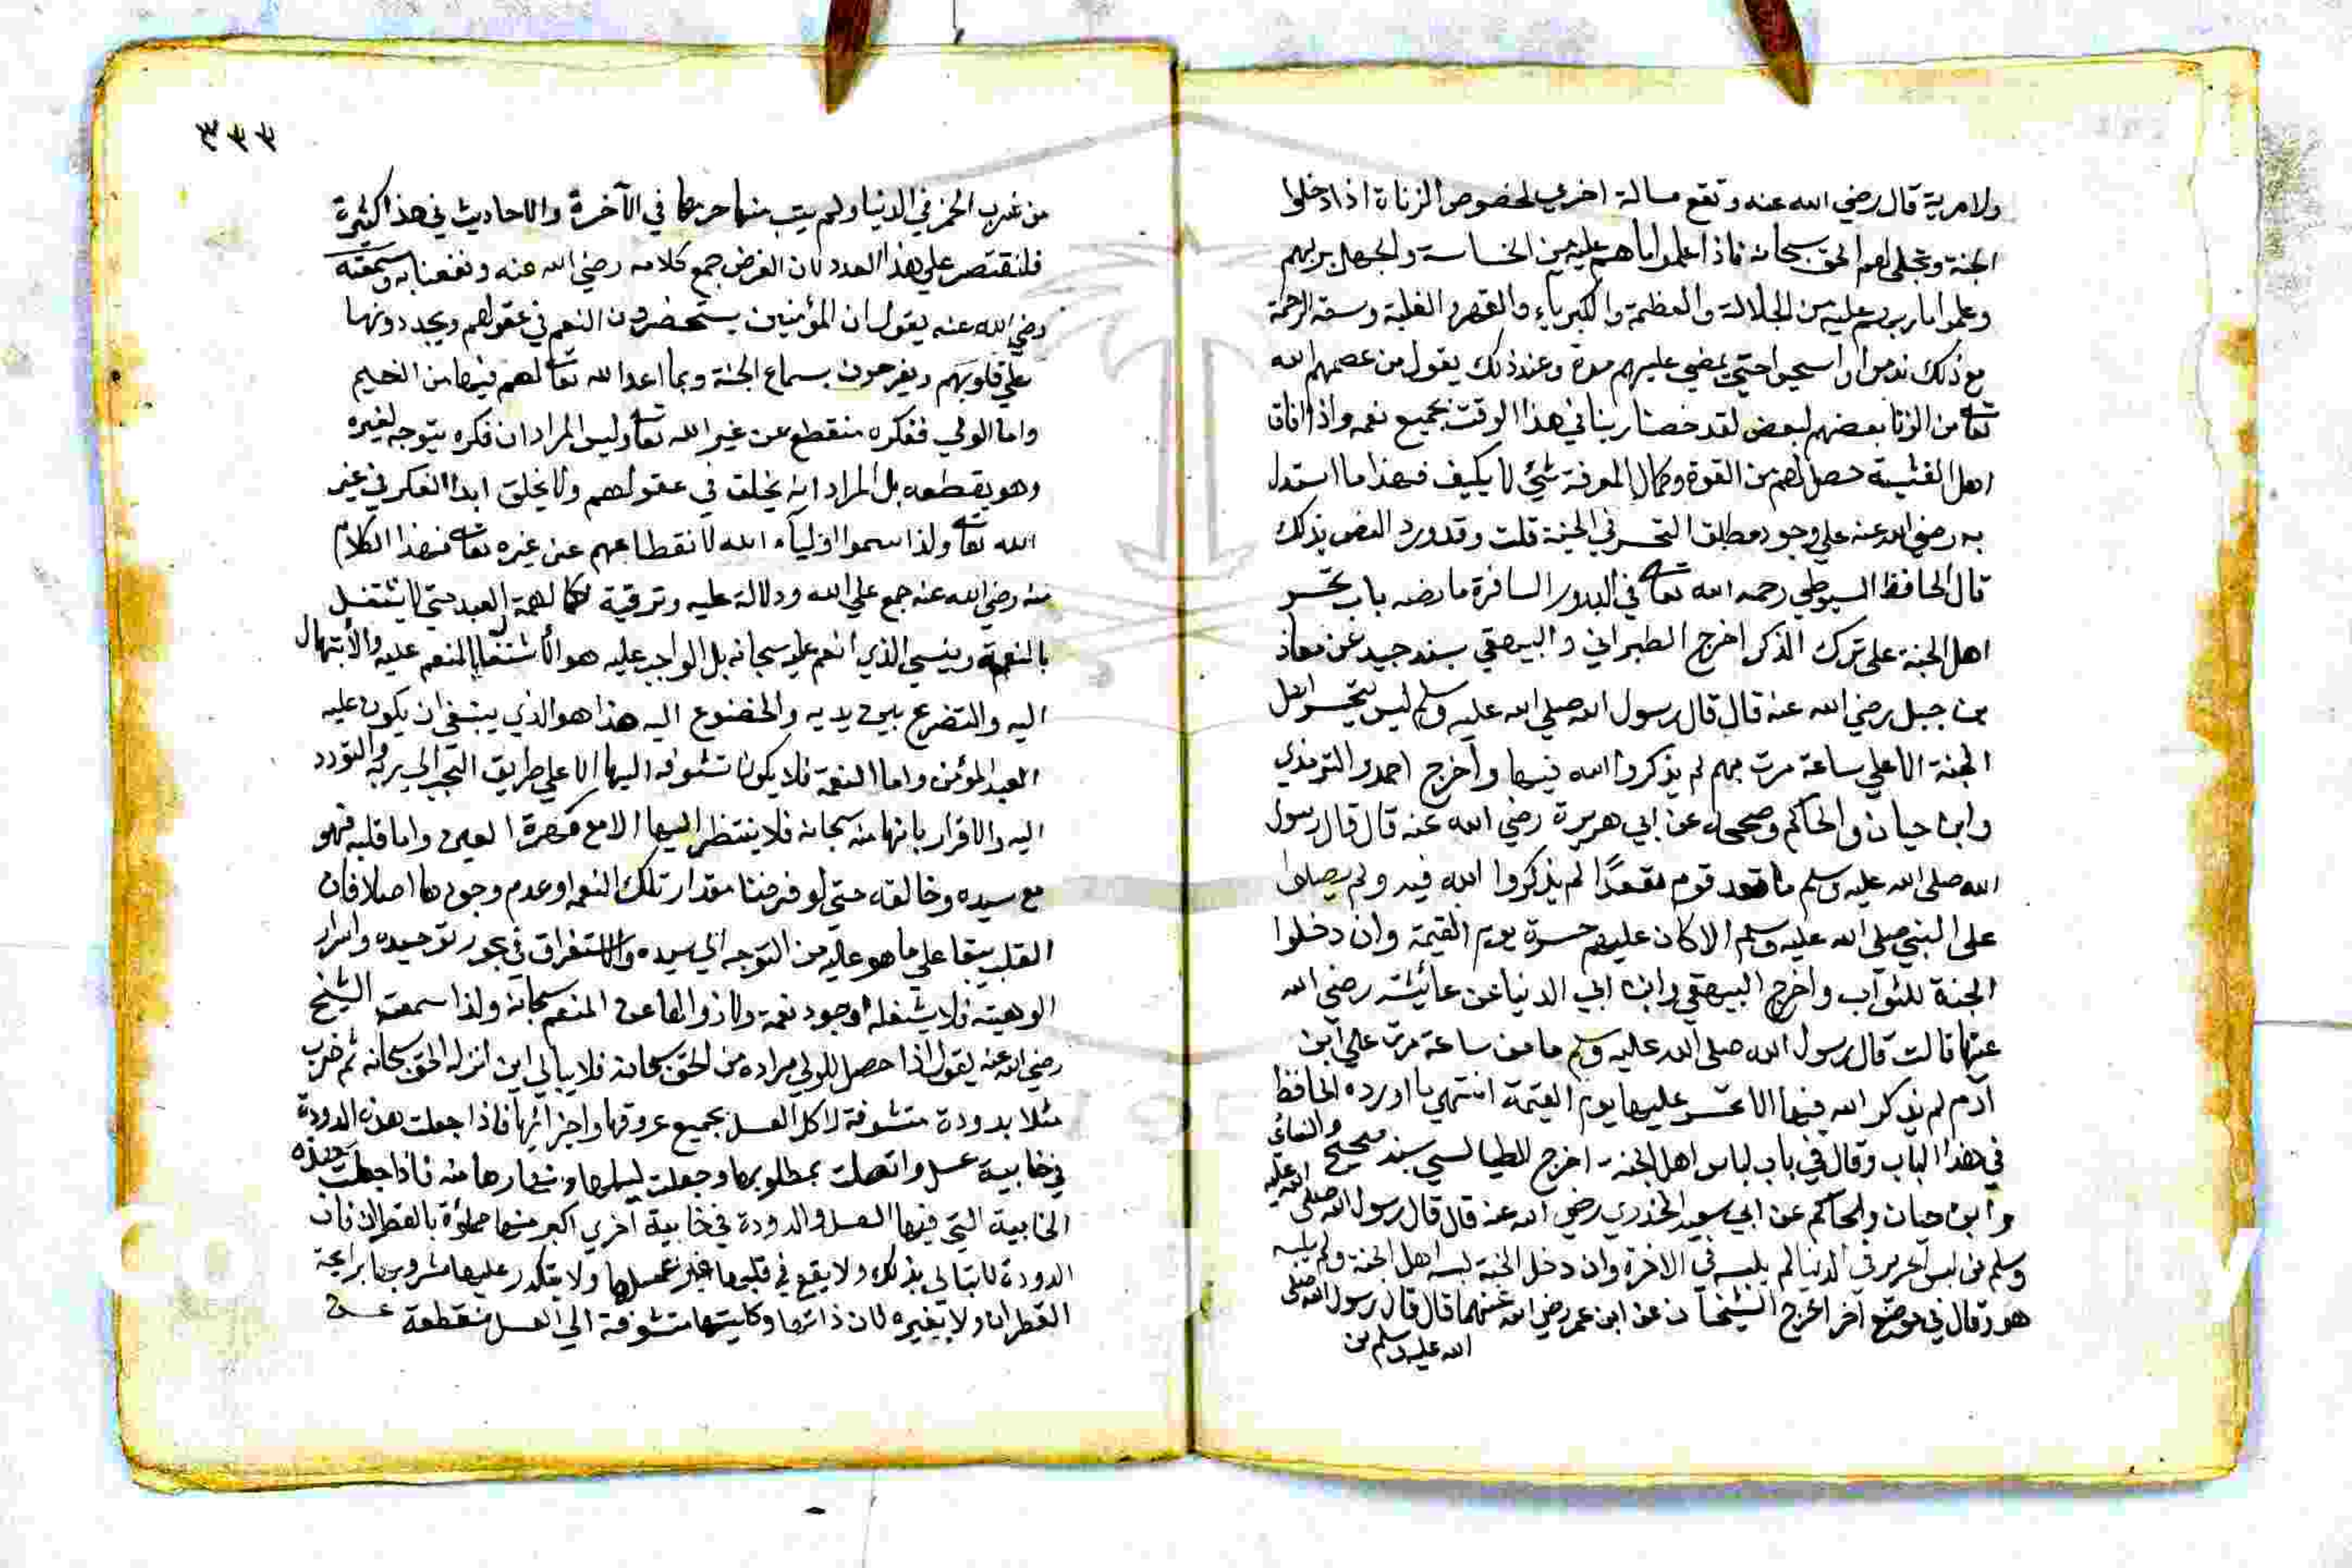 ولا مرية قال رضي الله عنه وتقع مسالة اخري لخصوص الزناة اذا دخلوا
الجنة وتجلى لهم الحق سبحانه فاذا علموا ما هم عليه من الخساسة والجهل بربهم
وعلموا ما ربهم عليه من الجلالة والعظمة والكبرياء والقهر والغلبة وسعة الرحمة
مع ذلك ندموا واستحيوا حتي يمضي عليهم مدة وعند ذلك يقول من عصمهم الله
تعالى من الزنا بعضهم لبعض لقد خصنا ربنا في هذا الوقت بجميع نعمه واذا افاق
اهل الغشية حصل لهم من القوة وكمال المعرفة شئ لا يكيف فهذا ما استدل
به رضي الله عنه علي وجود مطلق التحسر في الجنة قلت وقد ورد النص بذلك
قال الحافظ السيوطي رحمه الله تعالى في البدور السافرة ما نصه باب تحسر
اهل الجنة على ترك الذكر اخرج الطبراني والبيهقي بسند جيد عن معاذ
بن جبل رضي الله عنه قال قال رسول الله صلي الله عليه وسلم ليس يتحسر اهل
الجنة الا علي ساعة مرت بهم لم يذكروا الله فيها واخرج احمد والترمذي
وابن حبان والحاكم وصححه عن ابي هريرة رضي الله عنه قال قال رسول
الله صلى الله عليه وسلم ما قعد قوم مقعدًا لم يذكروا الله فيه ولم يصلوا
على النبي صلى الله عليه وسلم الا كان عليهم حسرة يوم القيمة وان دخلوا
الجنة للثواب واخرج البيهقي وابن ابي الدنيا عن عائشة رضي الله
عنها قالت قال رسول الله صلى الله عليه وسلم ما من ساعة مرت علي ابن
آدم لم يذكر الله فيها الا تحسر عليها يوم القيمة انتهي ما اورده الحافظ
في هذا الباب وقال في باب لباس اهل الجنة اخرج الطيالسي بسند صحيح والنسائي
وابن حبان والحاكم عن ابي سعيد الخدري رضي الله عنه قال قال رسول الله صلى الله عليه
وسلم من لبس الحرير في الدنيا لم يلبسه في الاخرة وان دخل الجنة لبسه اهل الجنة ولم يلبسه
هو وقال في موضع آخر اخرج الشيخان عن ابن عمر رضي الله عنهما قال قال رسول الله صلى
الله عليه وسلم من
٣٣٣
من شرب الخمر في الدنيا ولم يتب منها حرمها في الآخرة والاحاديث في هذا كثيرة
فلنقتصر علي هذا العدد لان الغرض جمع كلامه رضي الله عنه ونفعنا به وسمعته
رضي الله عنه يقول ان المؤمنين يستحضرون النعم في عقولهم ويجددونها
علي قلوبهم ويفرحون بسماع الجنة وبما اعد الله تعالى لهم فيها من النعيم
واما الولي ففكره منقطع عن غير الله تعالى وليس المراد ان فكره يتوجه لغيره
وهو يقطعه بل المراد انه يخلق في عقولهم ولا يخلق ابدا الفكر في غير
الله تعالى ولذا سموا اولياء الله لانقطاعهم عن غيره تعالى فهذا الكلام
منه رضي الله عنه جمع علي الله ودلالة عليه وترقية لهمة العبد حتي لا يشتغل
بالنعمة وينسي الذي انعم عليه سبحانه بل الواجب عليه هو الاشتغال بالمنعم عليه والأبتهال
اليه والتضرع بين يديه والخضوع اليه هذا هو الذي ينبغي ان يكون عليه
العبد المؤمن واما النعمة فلا يكون تشوفه اليها الا علي طريق التحبب الي ربه والتودد
اليه والاقرار بانها منه سبحانه فلا ينتظر اليها الا مع العين واما قلبه فهو
مع سيده وخالقه حتي لو فرضنا مقدار تلك النعم او عدم وجودها اصلا فان
القلب يبقا علي ما هو عليه من التوجه الي سيده والاستغراق في بحور توحيده واسرار
الوهيته فلا يشغله وجود نعمة ولا زوالها عن المنعم سبحانه ولذا سمعت الشيخ
رضي الله عنه يقول اذا حصل للولي مراده من الحق سبحانه فلا يبالي اين انزله الحق سبحانه ثم ضرب
مثلا بدودة متشوفة لاكل العسل بجميع عروقها واجزائها فاذا جعلت هذه الدودة
في خابية عسل واتصلت بمطلوبها وجعلت ليلها ونهارها منه فاذا جعلت هذه
الخابية التي فيها العسل والدودة في خابية آخري اكبر منها مملؤة بالقطران فان
الدودة لا تبالي بذلك ولا يقع في قلبها غير عسلها ولا يتكدر عليها مشروبها برائحة
القطران ولا بغيره لان ذاتها وكليتها متشوفة الي العسل منقطعة عن